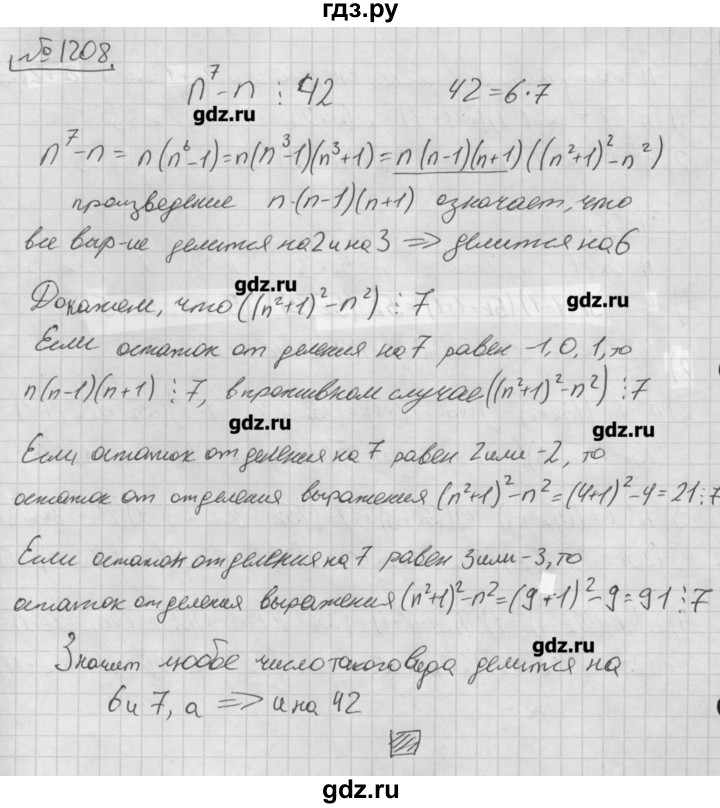 гдз.ру
№ 1208.
n⁷-n ⋮ 42 42=6·7
gdz.ru
n⁷-n = n(n⁶-1)=n(n³-1)(n³+1)=n(n-1)(n+1)((n²+1)²-n²)
произведение n·(n-1)(n+1) означает, что
все выр-ие делится на 2 и на 3 => делится на 6
gdz.ru
Докажем, что ((n²+1)²-n²) ⋮ 7
gdz.ru
Если остаток от деления на 7 равен -1, 0, 1, то
n(n-1)(n+1) ⋮ 7, в противном случае ((n²+1)²-n²) ⋮ 7
gdz.ru
gdz.ru
Если остаток от деления на 7 равен 2 или -2, то
остаток от отделения выражения (n²+1)²-n²=(4+1)²-4=21⋮7
Если остаток от деления на 7 равен 3 или -3, то
остаток от деления выражения (n²+1)²-n²=(9+1)²-9=91⋮7
gdz.ru
Значит любое число такого вида делится на
6 и 7, а => и на 42
gdz.ru
gdz.ru